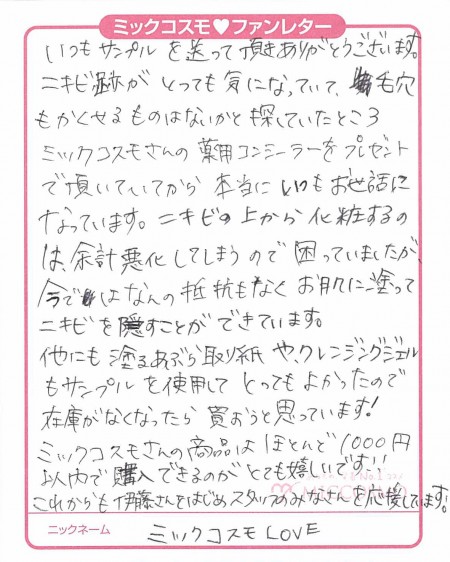 ミックコスモ♥ファンレター
いつもサンプルを送って頂きありがとうございます。
ニキビ跡がとっても気になっていて、毛穴
もかくせるものはないかと探していたところ
ミックコスモさんの薬用コンシーラーをプレゼント
で頂いていてから本当にいつもお世話に
なっています。ニキビの上から化粧するの
は、余計悪化してしまうので困っていましたが、
今ではなんの抵抗もなくお肌に塗って
ニキビを隠すことができています。
他にも塗るあぶら取り紙や、クレンジングジェル
もサンプルを使用してとってもよかったので
在庫がなくなったら買おうと思っています!
ミックコスモさんの商品はほとんど1000円
以内で購入できるのがとても嬉しいです!!
これからも伊藤さんをはじめ、スタッフのみなさんを応援しています!
ニックネーム ミックコスモLOVE